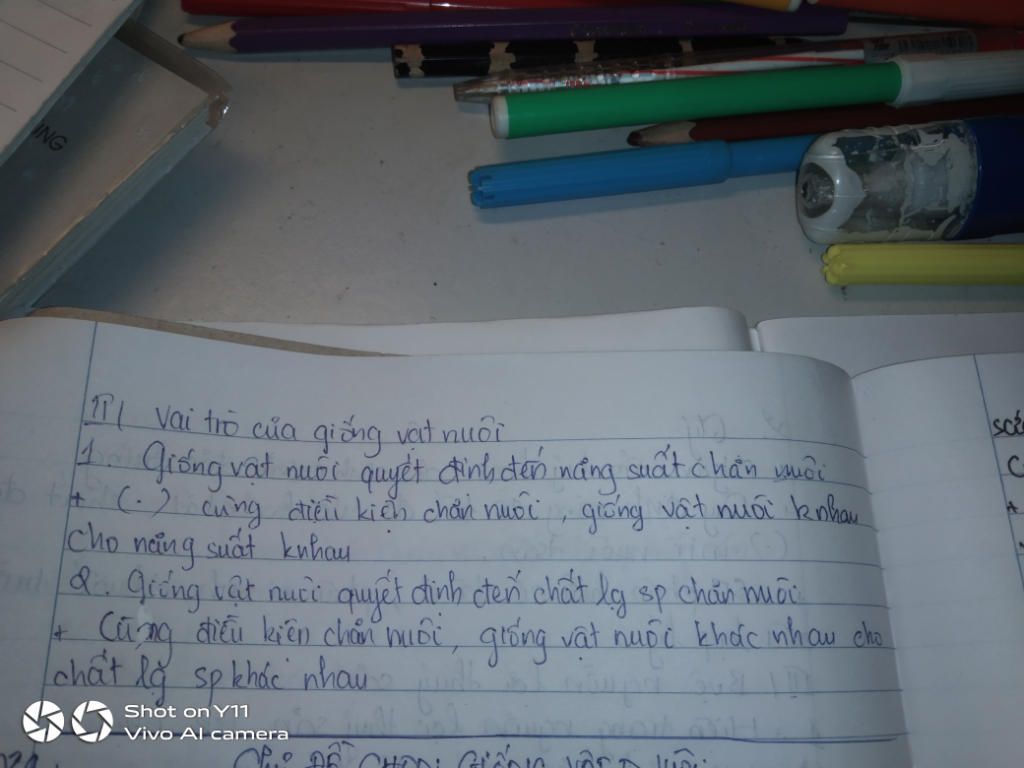 NING
II/ Vai trò của giống vật nuôi
1. Giống vật nuôi quyết định đến năng suất chăn nuôi
+ (.) cùng điều kiện chăn nuôi, giống vật nuôi knhau
cho năng suất knhau
2. Giống vật nuôi quyết định đến chất lg sp chăn nuôi
+ Cùng điều kiện chăn nuôi, giống vật nuôi khác nhau cho
chất lg sp khác nhau
Shot on Y11
Vivo AI camera